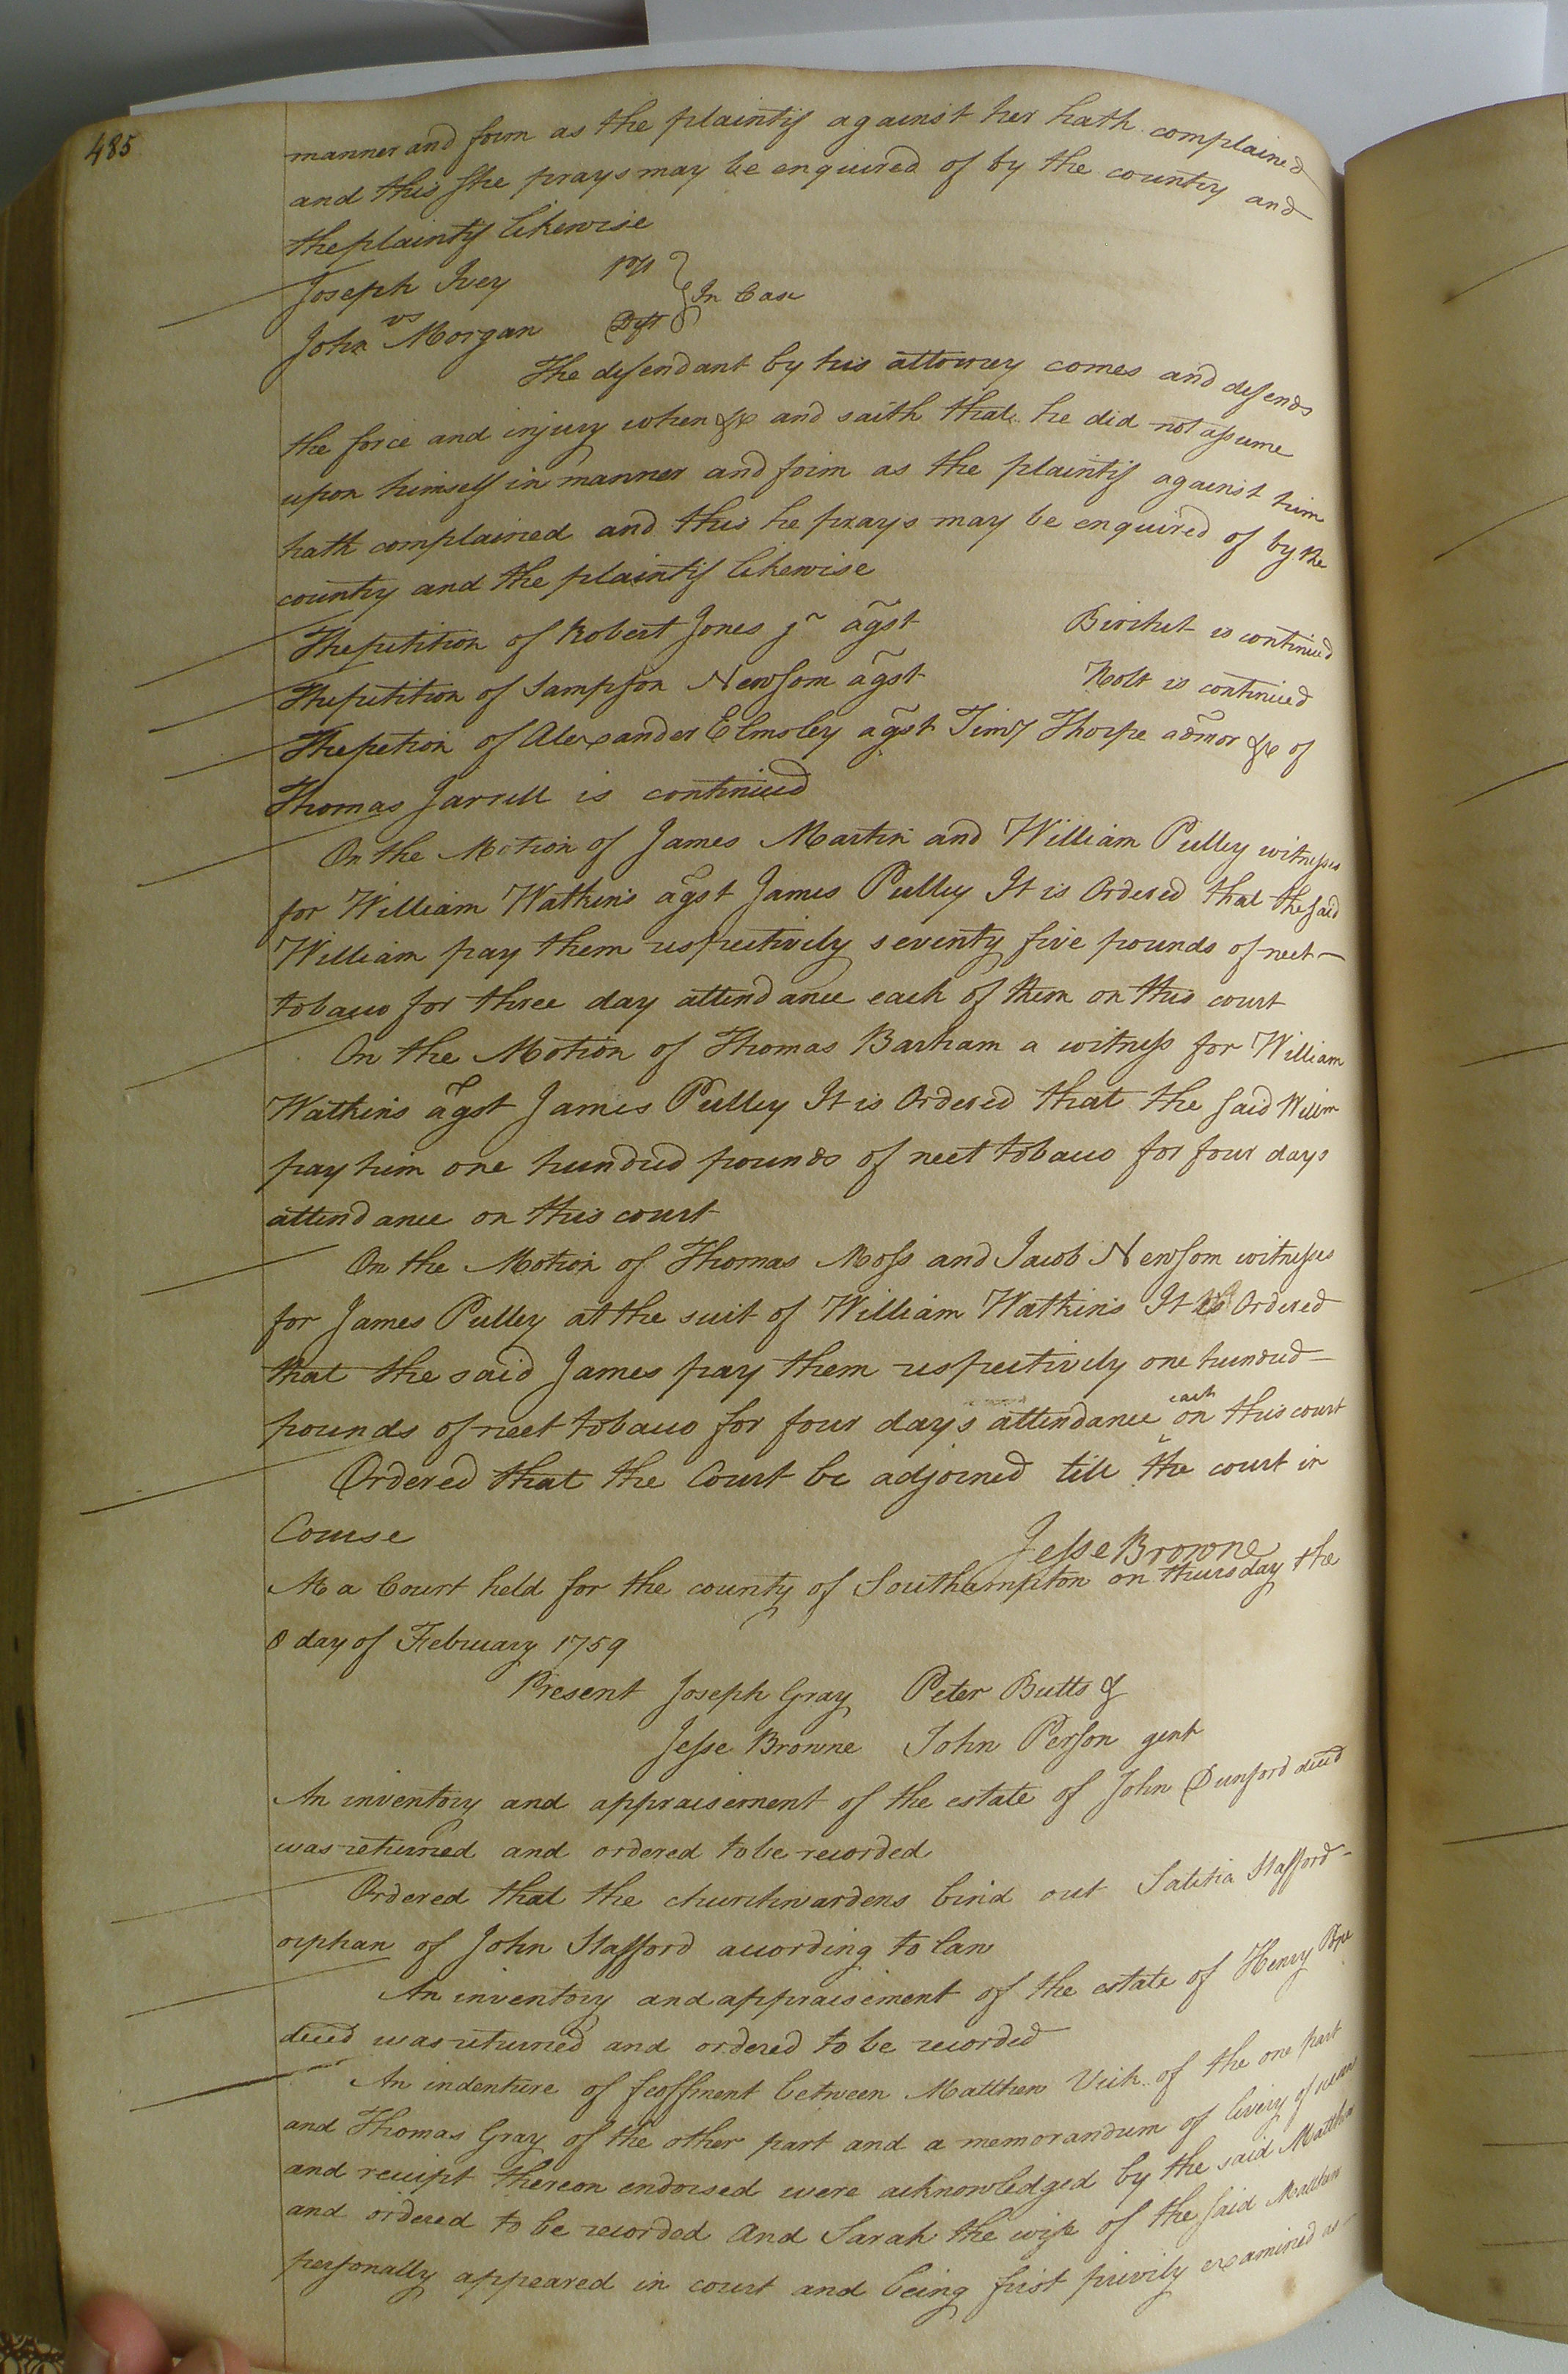 485
manner and form as the plaintif against her hath complained
and this she prays may be enquired of by the country and
the plaintif likewise
Joseph Ivey plt
vs } In Case
John Morgan Deft
The defendant by his attorney comes and defends
the force and injury when &c and saith that he did not assume
upon himself in manner and form as the plaintif against him
hath complained and this he prays may be enquired of by the
country and the plaintif likewise
The petition of Robert Jones jr agst Birchet is continued
The petition of Sampson Newsom agst Holt is continued
The petion of Alexander Elmsley agst Timy Thorpe admor &c of
Thomas Jarrell is continued
On the Motion of James Martin and William Pulley witnesses
for William Watkins agst James Pulley It is Ordered that the said
William pay them respectively seventy five pounds of neet
tobacco for three day attendance each of them on this court
On the Motion of Thomas Barham a witness for William
Watkins agst James Pulley It is Ordered that the said Willm
pay him one hundred pounds of neet tobacco for four days
attendance on this court
On the Motion of Thomas Moss and Jacob Newsom witnesses
for James Pulley at the suit of William Watkins It is Ordered
that the said James pay them respectively one hundred
pounds of neet tobacco for four days attendance each on this court
Ordered that the Court be adjorned till the court in
Course
Jesse Browne
At a Court held for the county of Southampton on thursday the
8 day of February 1759
Present Joseph Gray Peter Butts &
Jesse Browne John Person gent
An inventory and appraisement of the estate of John Dunford decd
was returned and ordered to be recorded
Ordered that the churchwardens bind out Latitia Stafford
orphan of John Stafford according to law
An inventory and appraisement of the estate of Henry
decd was returned and ordered to be recorded
An indenture of feoffment between Matthew Vick of the one part
and Thomas Gray of the other part and a memorandum of livery of
and receipt thereon endorsed were acknowledged by the said Matthw
and ordered to be recorded And Sarah the wife of the said Matthew
personally appeared in court and being first privily examined as